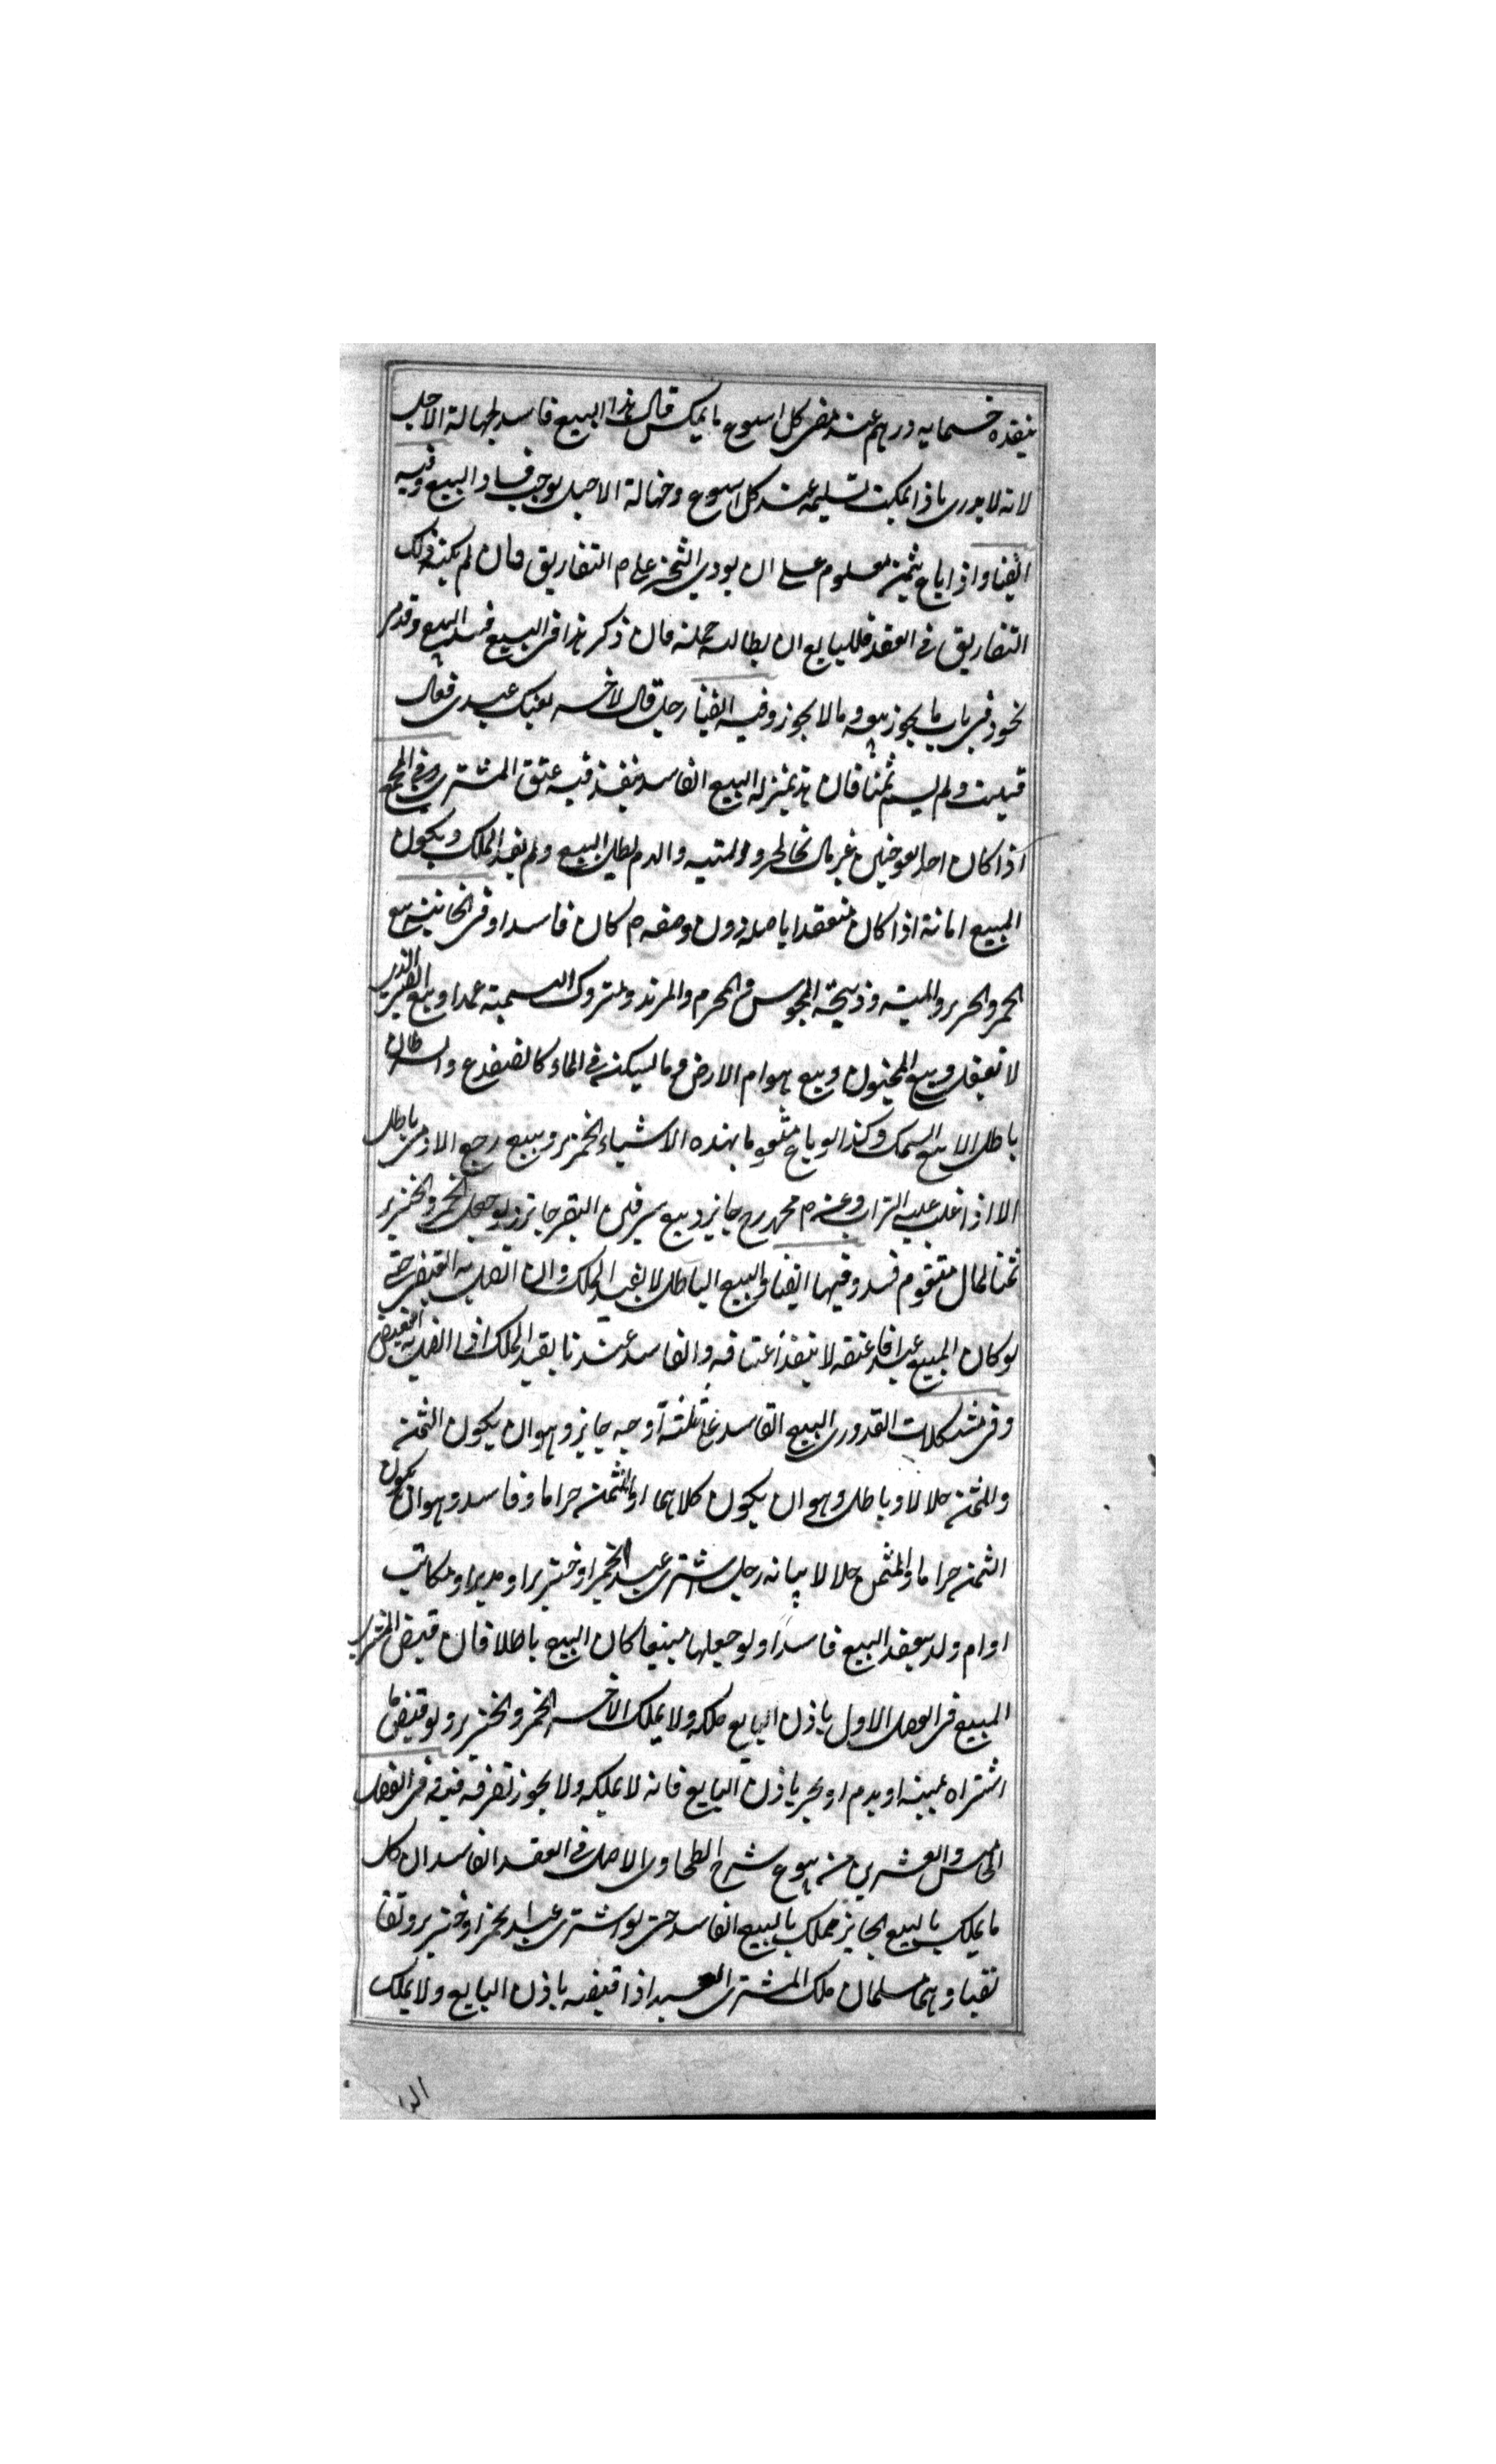 ينقده خمسمايه درهم عند مضى كل اسبوع ما يمكن قال هذا البيع فاسد لجهالة الاجل
لانه لا يدرى ماذا يمكنه تسليمه عند كل اسبوع وجهالة الاجل يوجب فساد البيع وفيه
ايضا واذا باع بثمن معلوم على ان يودى الثمن على التفاريق فان لم يكن ذلك
التفاريق فى العقد فللبايع ان يطالبه جملة فان ذكر هذا فى البيع فسد البيع وقد مر
نحوه فى باب ما يجوز بيعه وما لا يجوز وفيه ايضا رجل قال لاخر بعتك عبدى فقال
قبلت ولم يسم ثمنا فان هذا بمنزلة البيع الفاسد ينفذ فيه عتق المشترى وفى
اذا كان احد العوضين غير مال كالحر والميتة والدم بطل البيع ولم يفد الملك ويكون
المبيع امانة اذا كان منعقدا باصله دون وصفه كان فاسدا وفى الخانية بيع
الخمر والحر والميتة وذبيحة المجوس والمحرم والمرتد ومتروك التسمية عمدا وبيع الصبى الذى
لا يعقل وبيع المجنون وبيع هوام الارض وما يسكن فى الماء كالضفدع والسرطان
باطل الا بيع السمك وكذا لو باع متقوما بهذه الاشياء وبيع رجيع الادمى باطل
الا اذا غلب عليه التراب وعن محمد رح جايز وبيع سرقين البقر جايز ولو جعل الخمر والخنزير
ثمنا لمال متقوم فسد وفيها ايضا والبيع الباطل لا يفيد الملك وان اتصل به القبض حتى
لو كان المبيع عبدا فاعتقه لا ينفذ اعتاقه والفاسد عندنا يفيد الملك اذا اتصل به القبض
وفى مشكلات القدورى البيع الفاسد على ثلثة اوجه جايز وهو ان يكون الثمن
والمثمن حلالا وباطل وهو ان يكون كلاهما او المثمن حراما وفاسد وهو ان يكون
الثمن حراما والمثمن حلالا بيانه رجل اشترى عبدا بخمر او خنزير او مدبر او مكاتب
او ام ولد ينعقد البيع فاسدا ولو جعلها مبيعا كان البيع باطلا فان قبض المشترى
المبيع فى الفصل الاول باذن البايع ملكه ولا يملك الاخر الخمر والخنزير ولو قبض ما
اشتراه بميتة او بدم او بحر باذن البايع فانه لا يملكه ولا يجوز تصرفه فيه وفى الفصل
الخامس والعشرين من بيوع شرح الطحاوى الاصل فى العقد الفاسد ان كل
ما يملك بالبيع الجايز يملك بالبيع الفاسد حتى لو اشترى عبدا بخمر او خنزير وتقا
بضا وهما مسلمان ملك المشترى العبد اذا قبضه باذن البايع ولا يملك